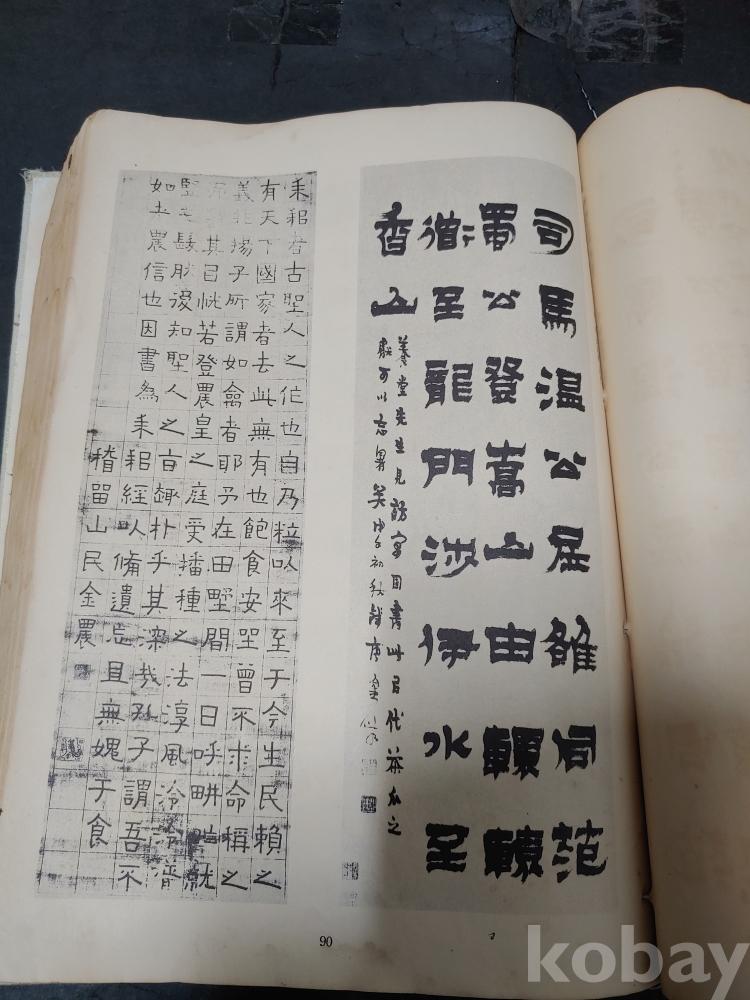 司馬温公居雒同范
蜀公登嵩山由轘轅
衟至龍門涉伊水至
香山
養堂先生見訪寓田書此目代茶瓜之
獻可以忘暑矣 初秋
耒耜者古聖人之作也自乃粒以來至于今生民賴之
有天下國家者去此無有也飽食安坐曾不求命稱之
義非揚子所謂如禽者耶予在田野間一日呼畊甿就
其目恍若登農皇之庭受播種之法淳風泠泠
髮然後知聖人之言朴乎其深哉孔子謂吾不
如土農信也因書為耒耜經以脩遺忘且無媿于食
稽留山民金農
90
kobay